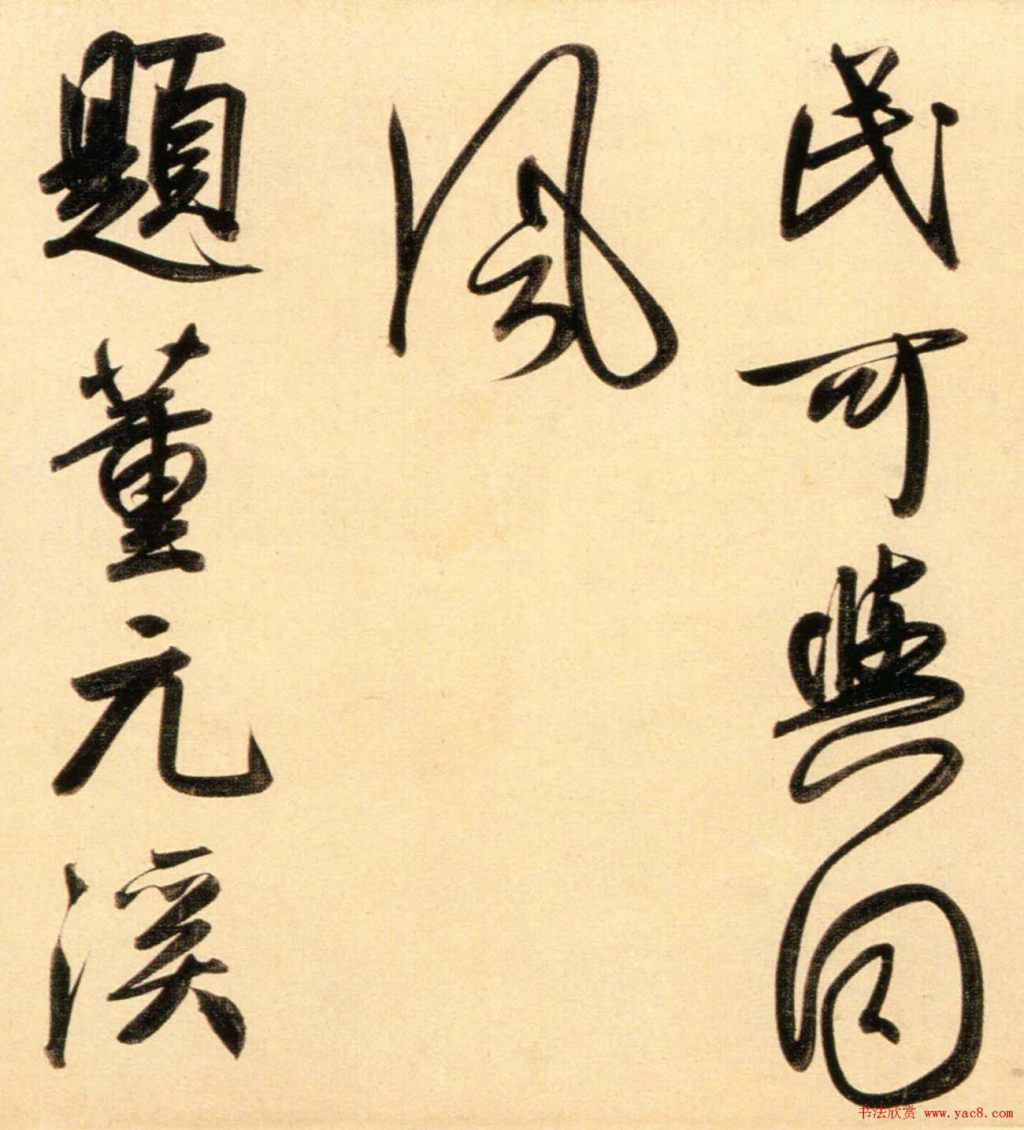 民可與同
風
題董元溪
书法欣赏 www.yac8.com